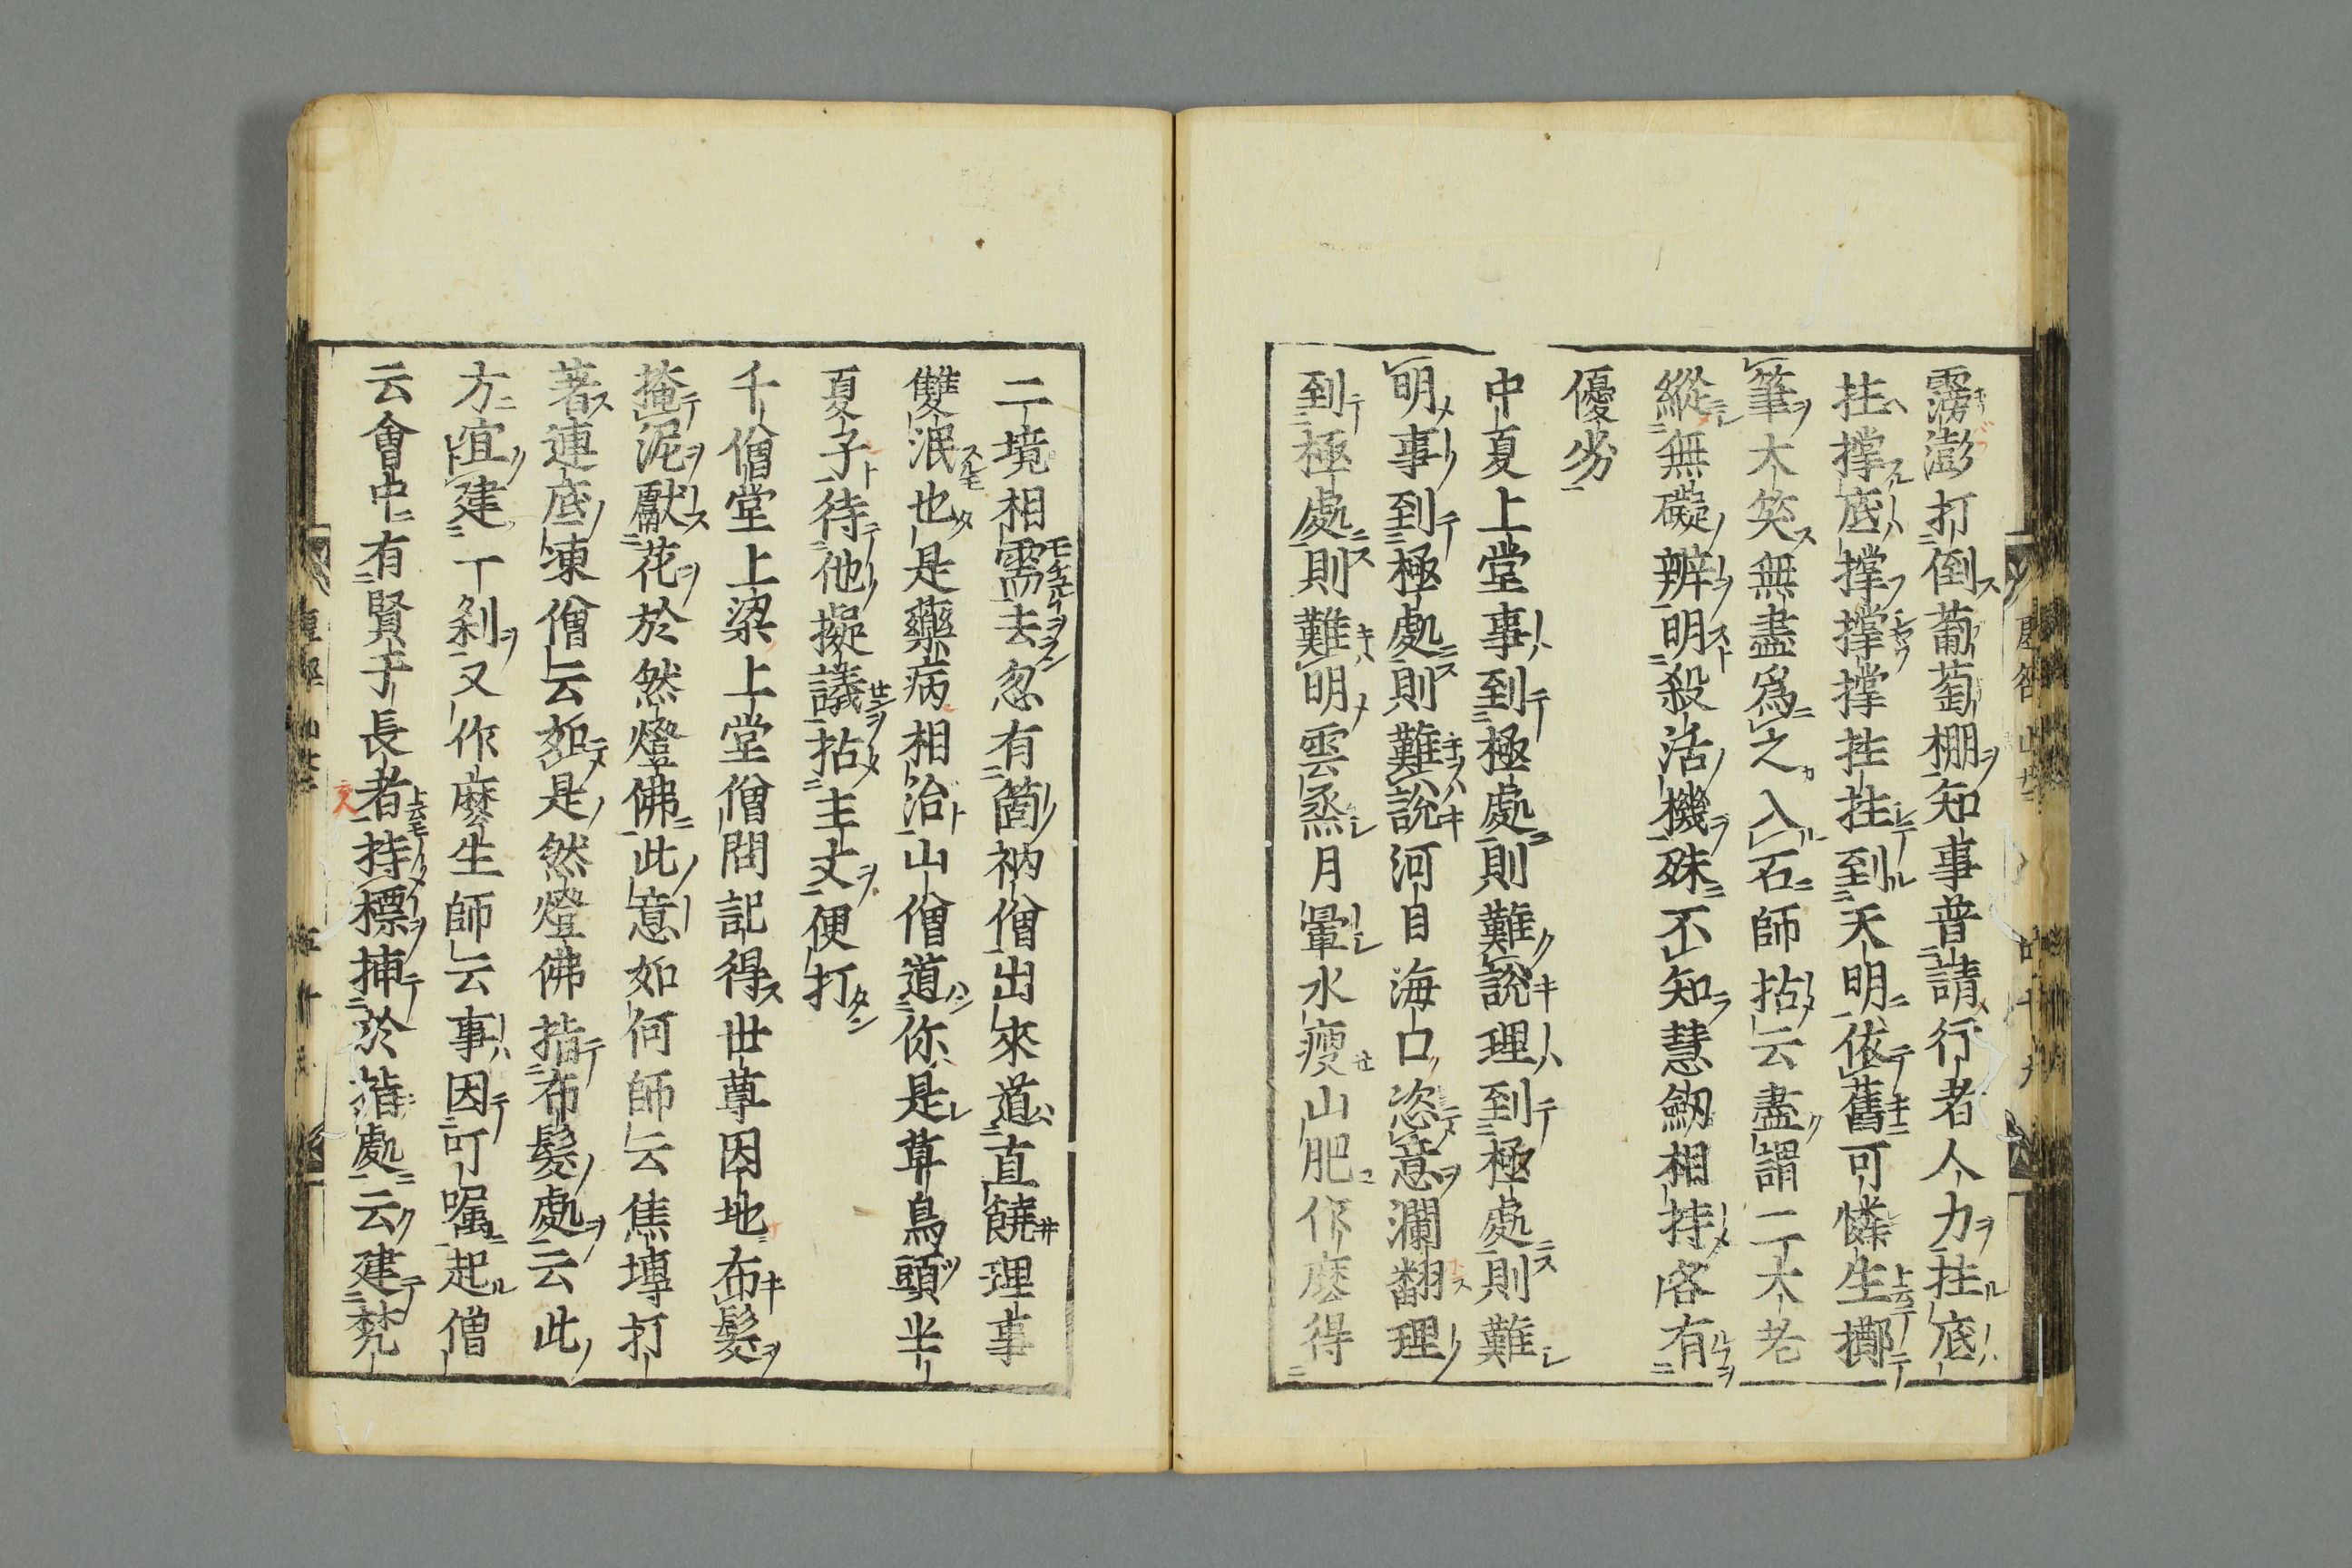 霶澎打倒葡萄棚知事普請行者人力拄底
拄撑底撑撑撑拄拄到天明依舊可憐生擲
筆大笑無盡爲之入石師拈云盡謂二大老
縱無礙辨明殺活機殊不知慧劒相持各有
優劣
中夏上堂事到極處則難說理到極處則難
明事到極處則難說河目海口恣意瀾翻理
到極處則難明雲烝月暈水瘦山肥作麽得
二境相需去忽有箇衲僧出來道直饒理事
雙泯也是藥病相治山僧道你是草鳥頭半
夏子待他擬議拈主丈便打
千僧堂上梁上堂僧問記得世尊因地布髮
掩泥獻花於然燈佛此意如何師云焦塼打
著連底凍僧云如是然燈佛指布髮處云此
方宜建一刹又作麽生師云事因叮囑起僧
云會中有賢于長者持標揷於指處云建梵